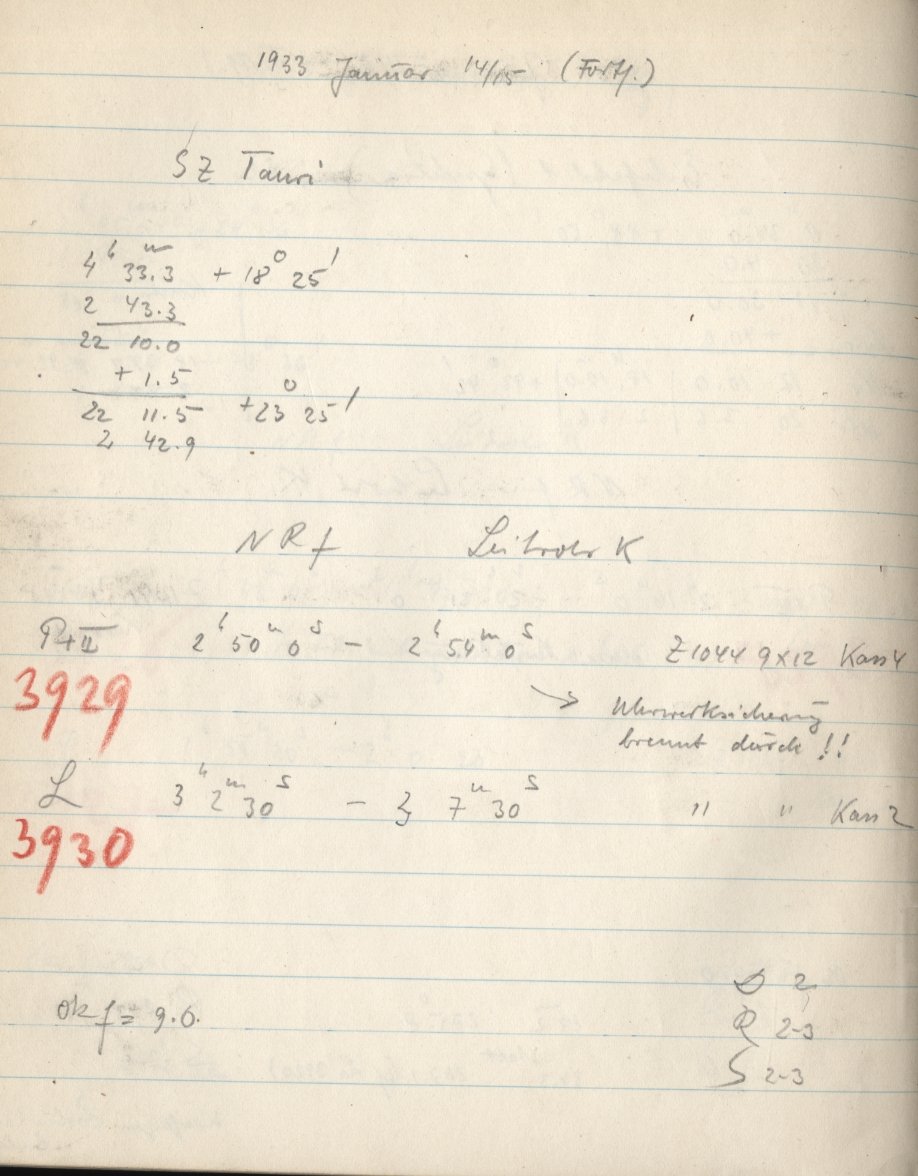 1933 Januar 14/15 (Fortf.)
SZ Tauri
4ʰ 33.3ᵐ + 18° 25'
2 43.3
22 10.0
+ 1.5
22 11.5 + 23° 25'
2 42.9
NRf Leitrohr K
P+II 2ʰ 50ᵐ 0ˢ – 2ʰ 54ᵐ 0ˢ Z1044 9x12 Kass 4
3929
Uhrwerksicherung
brennt durch!!
L 3ʰ 2ᵐ 30ˢ – 3 7ᵐ 30ˢ " " Kass 2
3930
D 2
Ok f = 9.0.
R 2-3
S 2-3